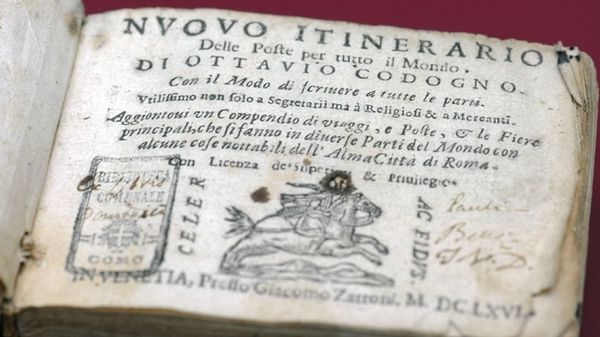 NVOVO ITINERARIO
Delle Poste per tutto il Mondo.
DI OTTAVIO CODOGNO.
Con il Modo di scriuere a tutte le parti.
Vtilissimo non solo a Segretarii ma à Religiosi & a Mercanti.
Aggiontoui vn Compendio di viaggi, e Poste, & le Fiere
principali, che si fanno in diuerse Parti del Mondo con
alcune cose nottabili dell'Alma Città di Roma.
Con Licenza de' Superiori & Priuilegio.
BIBLIOTECA
COMUNALE
COMO
CELER
AC FIDVS.
IN VENETIA, Presso Giacomo Zattoni. M. DCLXVI.